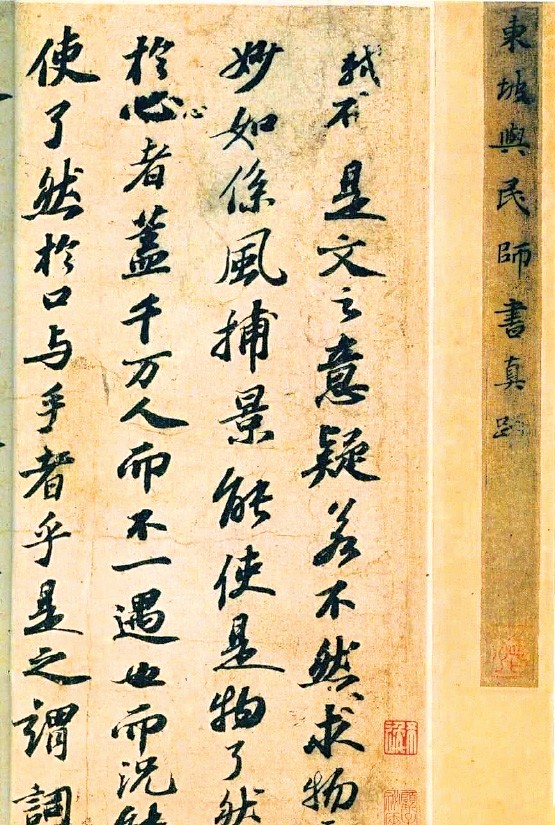 東坡與民師書真
是文之意疑若不然求物
妙如係風捕景能使是物了然
於心者蓋千万人而不一遇也而況能
心
使了然於口与手者乎是之謂詞